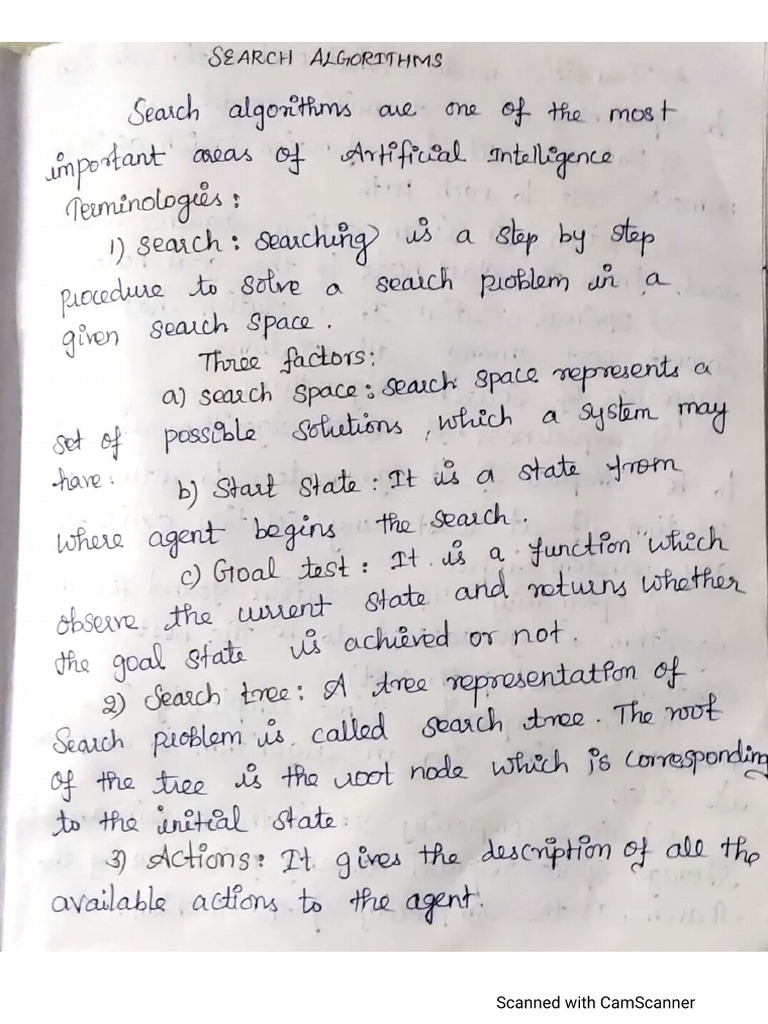 SEARCH ALGORITHMS
Search algorithms are one of the most
important areas of Artificial Intelligence
Terminologies:
1) Search: Searching is a step by step
procedure to solve a search problem in a
given search space.
Three factors:
a) search space: search space represents a
set of possible solutions, which a system may
have.
b) Start State: It is a state from
where agent begins the search.
c) Goal test: It is a function which
observe the current state and returns whether
the goal state is achieved or not.
2) Search tree: A tree representation of
Search problem is called search tree. The root
of the tree is the root node which is corresponding
to the initial state.
3) Actions: It gives the description of all the
available actions to the agent.
Scanned with CamScanner